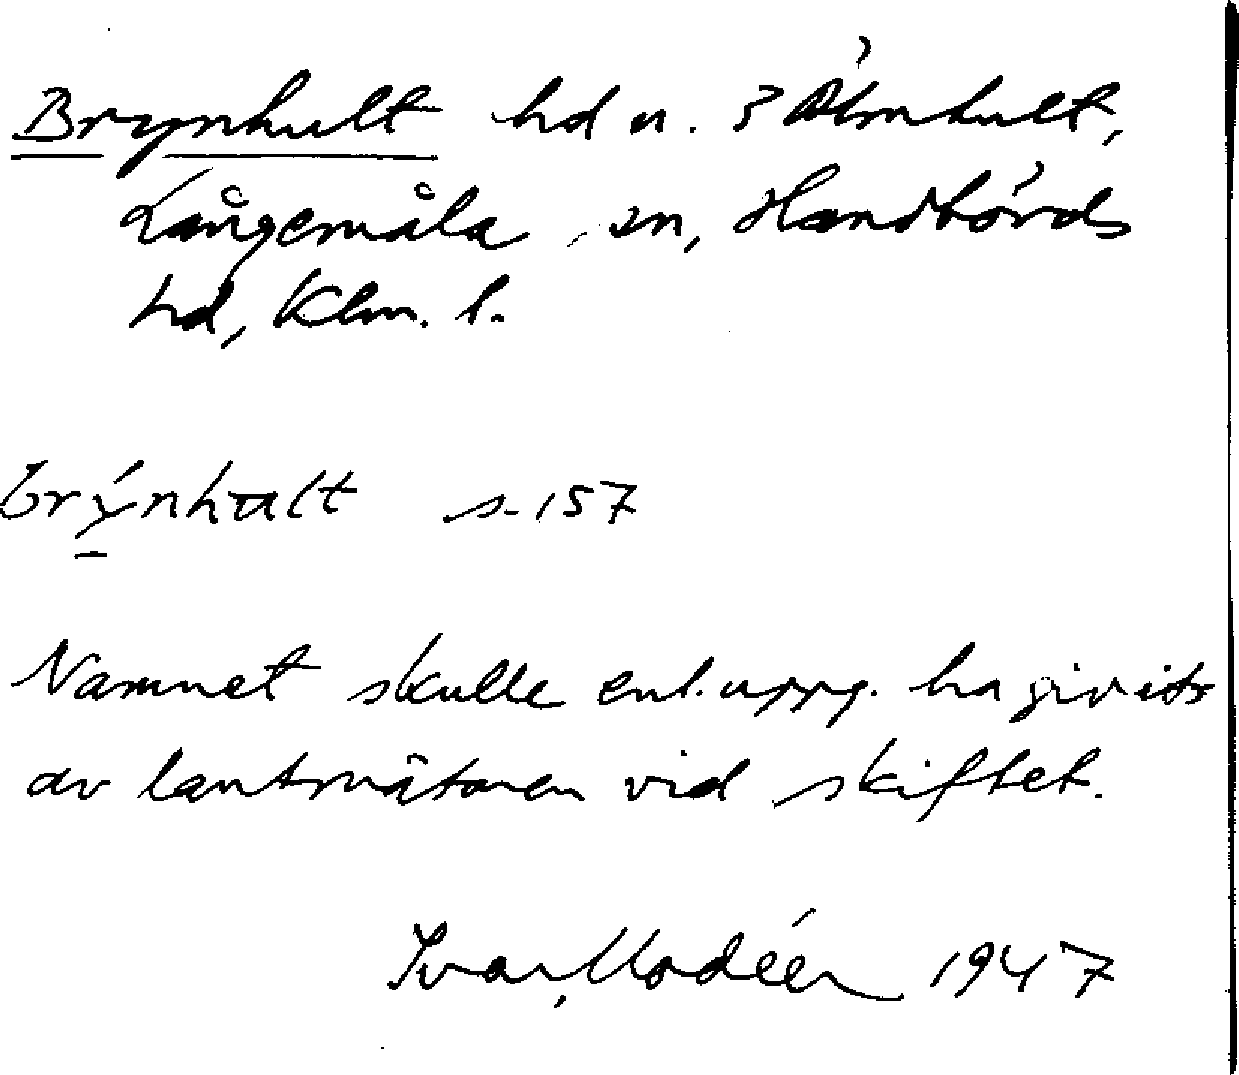 Brynhult hd u. 3 Älmhult,
Långemåla sn, Handbörds
hd, Klm. l.
brýnhult s. 157
Namnet skulle enl. uppg. ha givits
av lantmätaren vid skiftet.
Ivar Modéer 1947